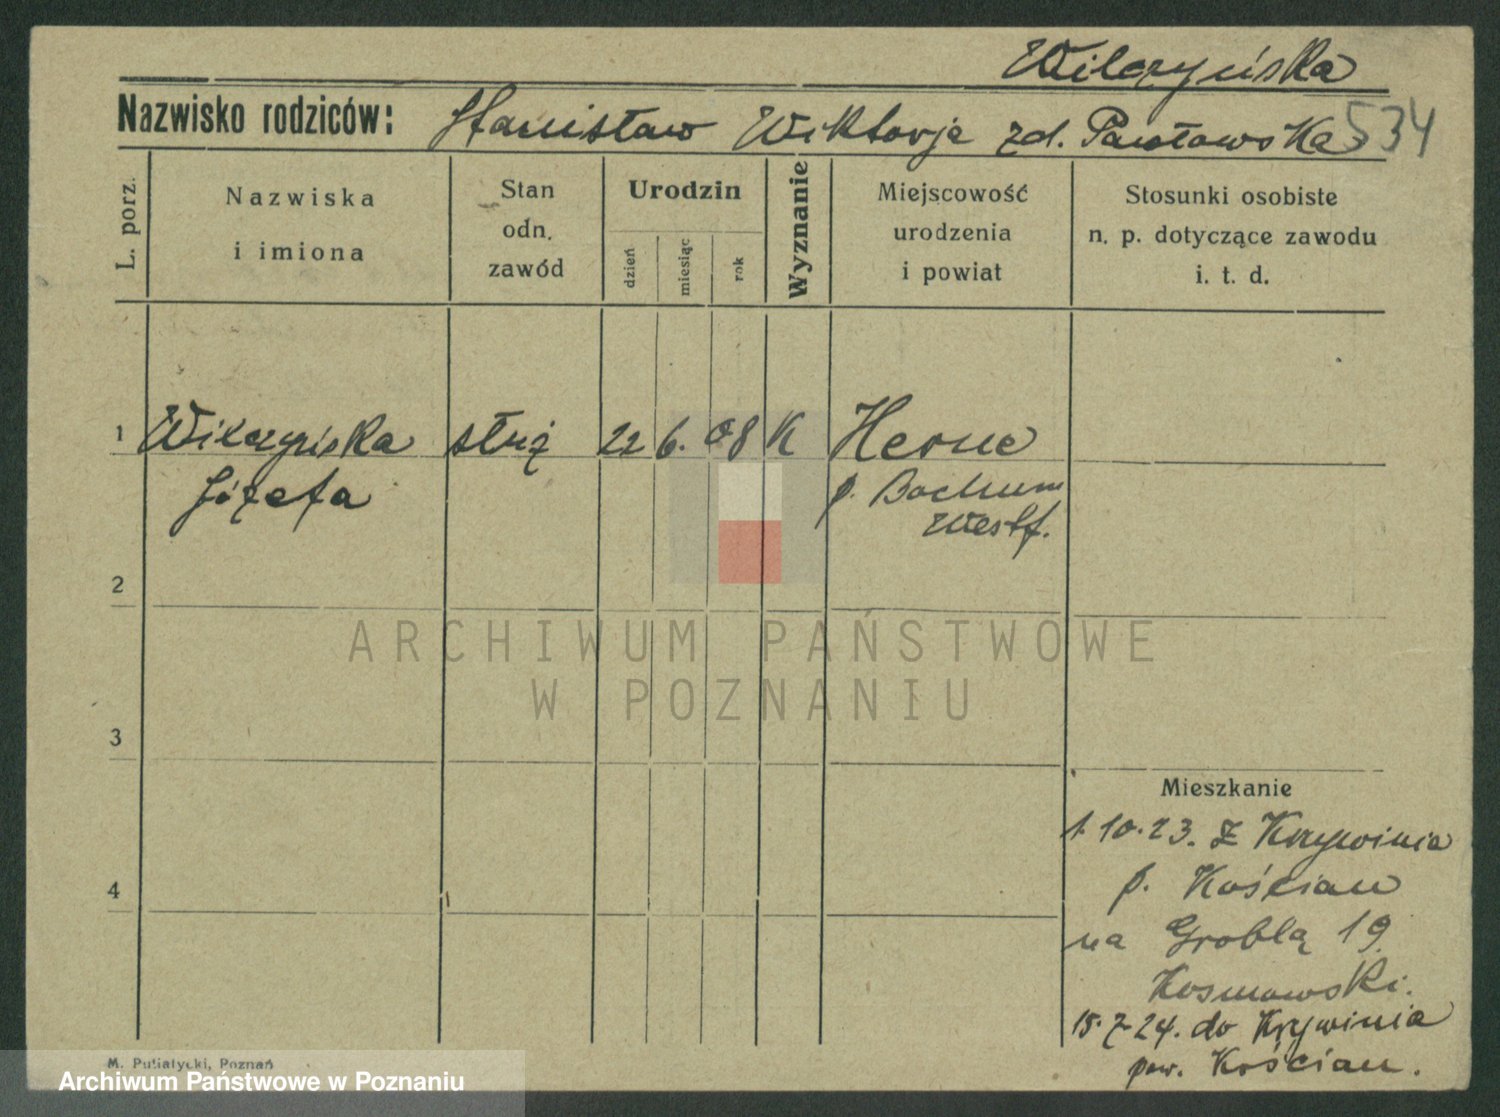 Wilczyńska
Nazwisko rodziców: Stanisław Wiktorja zd. Pawłowska 534
L. porz.
Nazwiska
i imiona
Stan
odn.
zawód
Urodzin
dzień
miesiąc
rok
Wyznanie
Miejscowość
urodzenia
i powiat
Stosunki osobiste
n. p. dotyczące zawodu
i. t. d.
1 Wilczyńska służ 22 6. 08 K Herne
Józefa p. Bochum
Westf.
2
ARCHIWUM PAŃSTWOWE
W POZNANIU
3
Mieszkanie
1.10.23. z Krzywinia
4 p. Kościan
na Groblą 19
Kosmowski.
15.7.24. do Krzywinia
pow. Kościan.
M. Putiatycki, Poznań
Archiwum Państwowe w Poznaniu